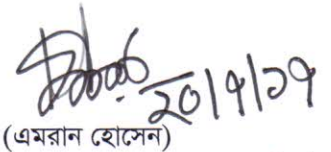 ২০/৭/১৭
(এমরান হোসেন)